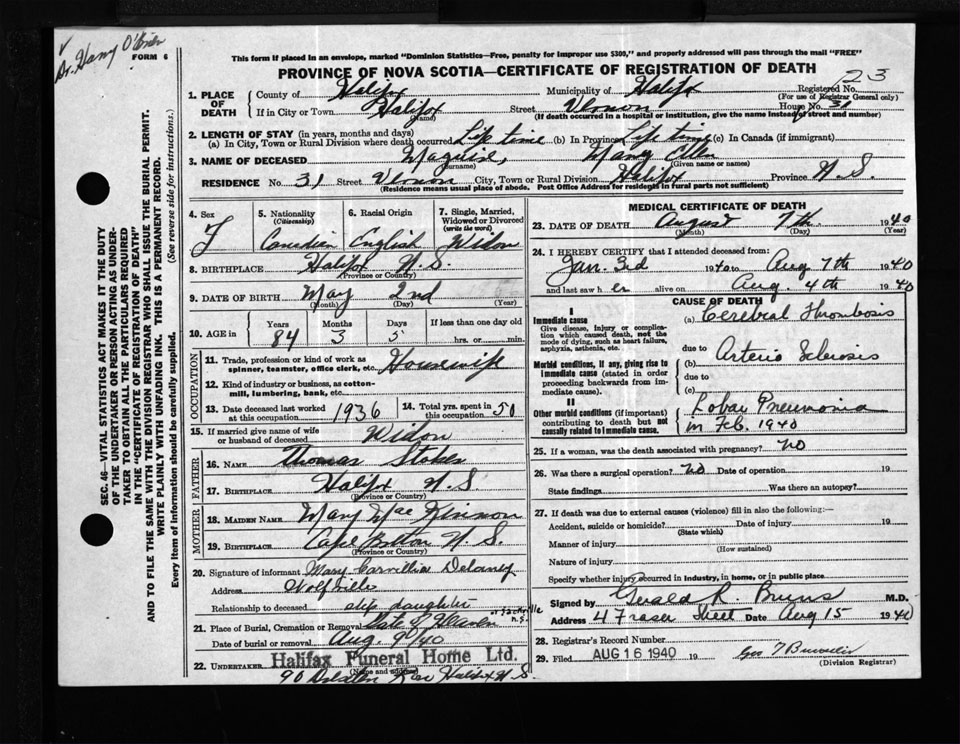 Dr. Harry O'Brien
FORM 6
This form if placed in an envelope, marked "Dominion Statistics—Free, penalty for improper use $300," and properly addressed will pass through the mail "FREE"
PROVINCE OF NOVA SCOTIA—CERTIFICATE OF REGISTRATION OF DEATH
123
1. PLACE OF DEATH
County of Halifax Municipality of Halifax Registered No.
(For use of Registrar General only)
If in City or Town Halifax Street Vernon House No. 31
(Name) (If death occurred in a hospital or institution, give the name instead of street and number)
2. LENGTH OF STAY (in years, months and days)
(a) In City, Town or Rural Division where death occurred Life time (b) In Province Life time (c) In Canada (if immigrant)
3. NAME OF DECEASED Mary Ellen
(Surname) (Given name or names)
RESIDENCE No. 31 Street Vernon City, Town or Rural Division Halifax Province N.S.
(Residence means usual place of abode. Post Office Address for residents in rural parts not sufficient)
SEC. 46—VITAL STATISTICS ACT MAKES IT THE DUTY
OF THE UNDERTAKER OR PERSON ACTING AS UNDER-
TAKER TO OBTAIN ALL THE PARTICULARS REQUIRED
IN THE "CERTIFICATE OF REGISTRATION OF DEATH"
AND TO FILE THE SAME WITH THE DIVISION REGISTRAR WHO SHALL ISSUE THE BURIAL PERMIT.
WRITE PLAINLY WITH UNFADING INK. THIS IS A PERMANENT RECORD.
Every item of information should be carefully supplied. (See reverse side for instructions.)
4. Sex 5. Nationality (Citizenship) 6. Racial Origin 7. Single, Married, Widowed or Divorced (write the word)
F Canadian English Widow
8. BIRTHPLACE Halifax N.S.
(Province or Country)
9. DATE OF BIRTH May 2nd
(Month) (Day) (Year)
10. AGE in Years Months Days If less than one day old
84 3 5 hrs. or min.
OCCUPATION
11. Trade, profession or kind of work as spinner, teamster, office clerk, etc. Housewife
12. Kind of industry or business, as cotton-mill, lumbering, bank, etc.
13. Date deceased last worked at this occupation 1936 14. Total yrs. spent in this occupation 50
15. If married give name of wife or husband of deceased Widow
FATHER
16. NAME Thomas Stokes
17. BIRTHPLACE Halifax N.S.
(Province or Country)
MOTHER
18. MAIDEN NAME Mary Mac Kinnon
19. BIRTHPLACE Cape Breton N.S.
(Province or Country)
20. Signature of informant Mary Delaney
Address Wolfville
Relationship to deceased step daughter
21. Place of Burial, Cremation or Removal Gate of Heaven Sackville N.S.
Date of burial or removal Aug. 9/40
22. UNDERTAKER Halifax Funeral Home Ltd.
(Name and address)
90 Halifax N.S.
MEDICAL CERTIFICATE OF DEATH
23. DATE OF DEATH August 7th 1940
(Month) (Day) (Year)
24. I HEREBY CERTIFY that I attended deceased from:
Jan. 3rd 1940 to Aug 7th 1940
and last saw her alive on Aug. 4th 1940
CAUSE OF DEATH
I
Immediate cause
Give disease, injury or complication which caused death, not the mode of dying, such as heart failure, asphyxia, asthenia, etc.
(a) Cerebral Thrombosis
due to
Morbid conditions, if any, giving rise to immediate cause (stated in order proceeding backwards from immediate cause).
(b) Arterio Sclerosis
due to
(c)
II
Other morbid conditions (if important) contributing to death but not causally related to immediate cause.
Lobar Pneumonia
in Feb. 1940
25. If a woman, was the death associated with pregnancy? no
26. Was there a surgical operation? no Date of operation 19
State findings Was there an autopsy?
27. If death was due to external causes (violence) fill in also the following:—
Accident, suicide or homicide? Date of injury 19
(State which)
Manner of injury
(How sustained)
Nature of injury
Specify whether injury occurred in industry, in home, or in public place
Signed by Gerald R. Burns M.D.
Address 4 Fraser Street Date Aug 15 1940
28. Registrar's Record Number
29. Filed AUG 16 1940
(Division Registrar)